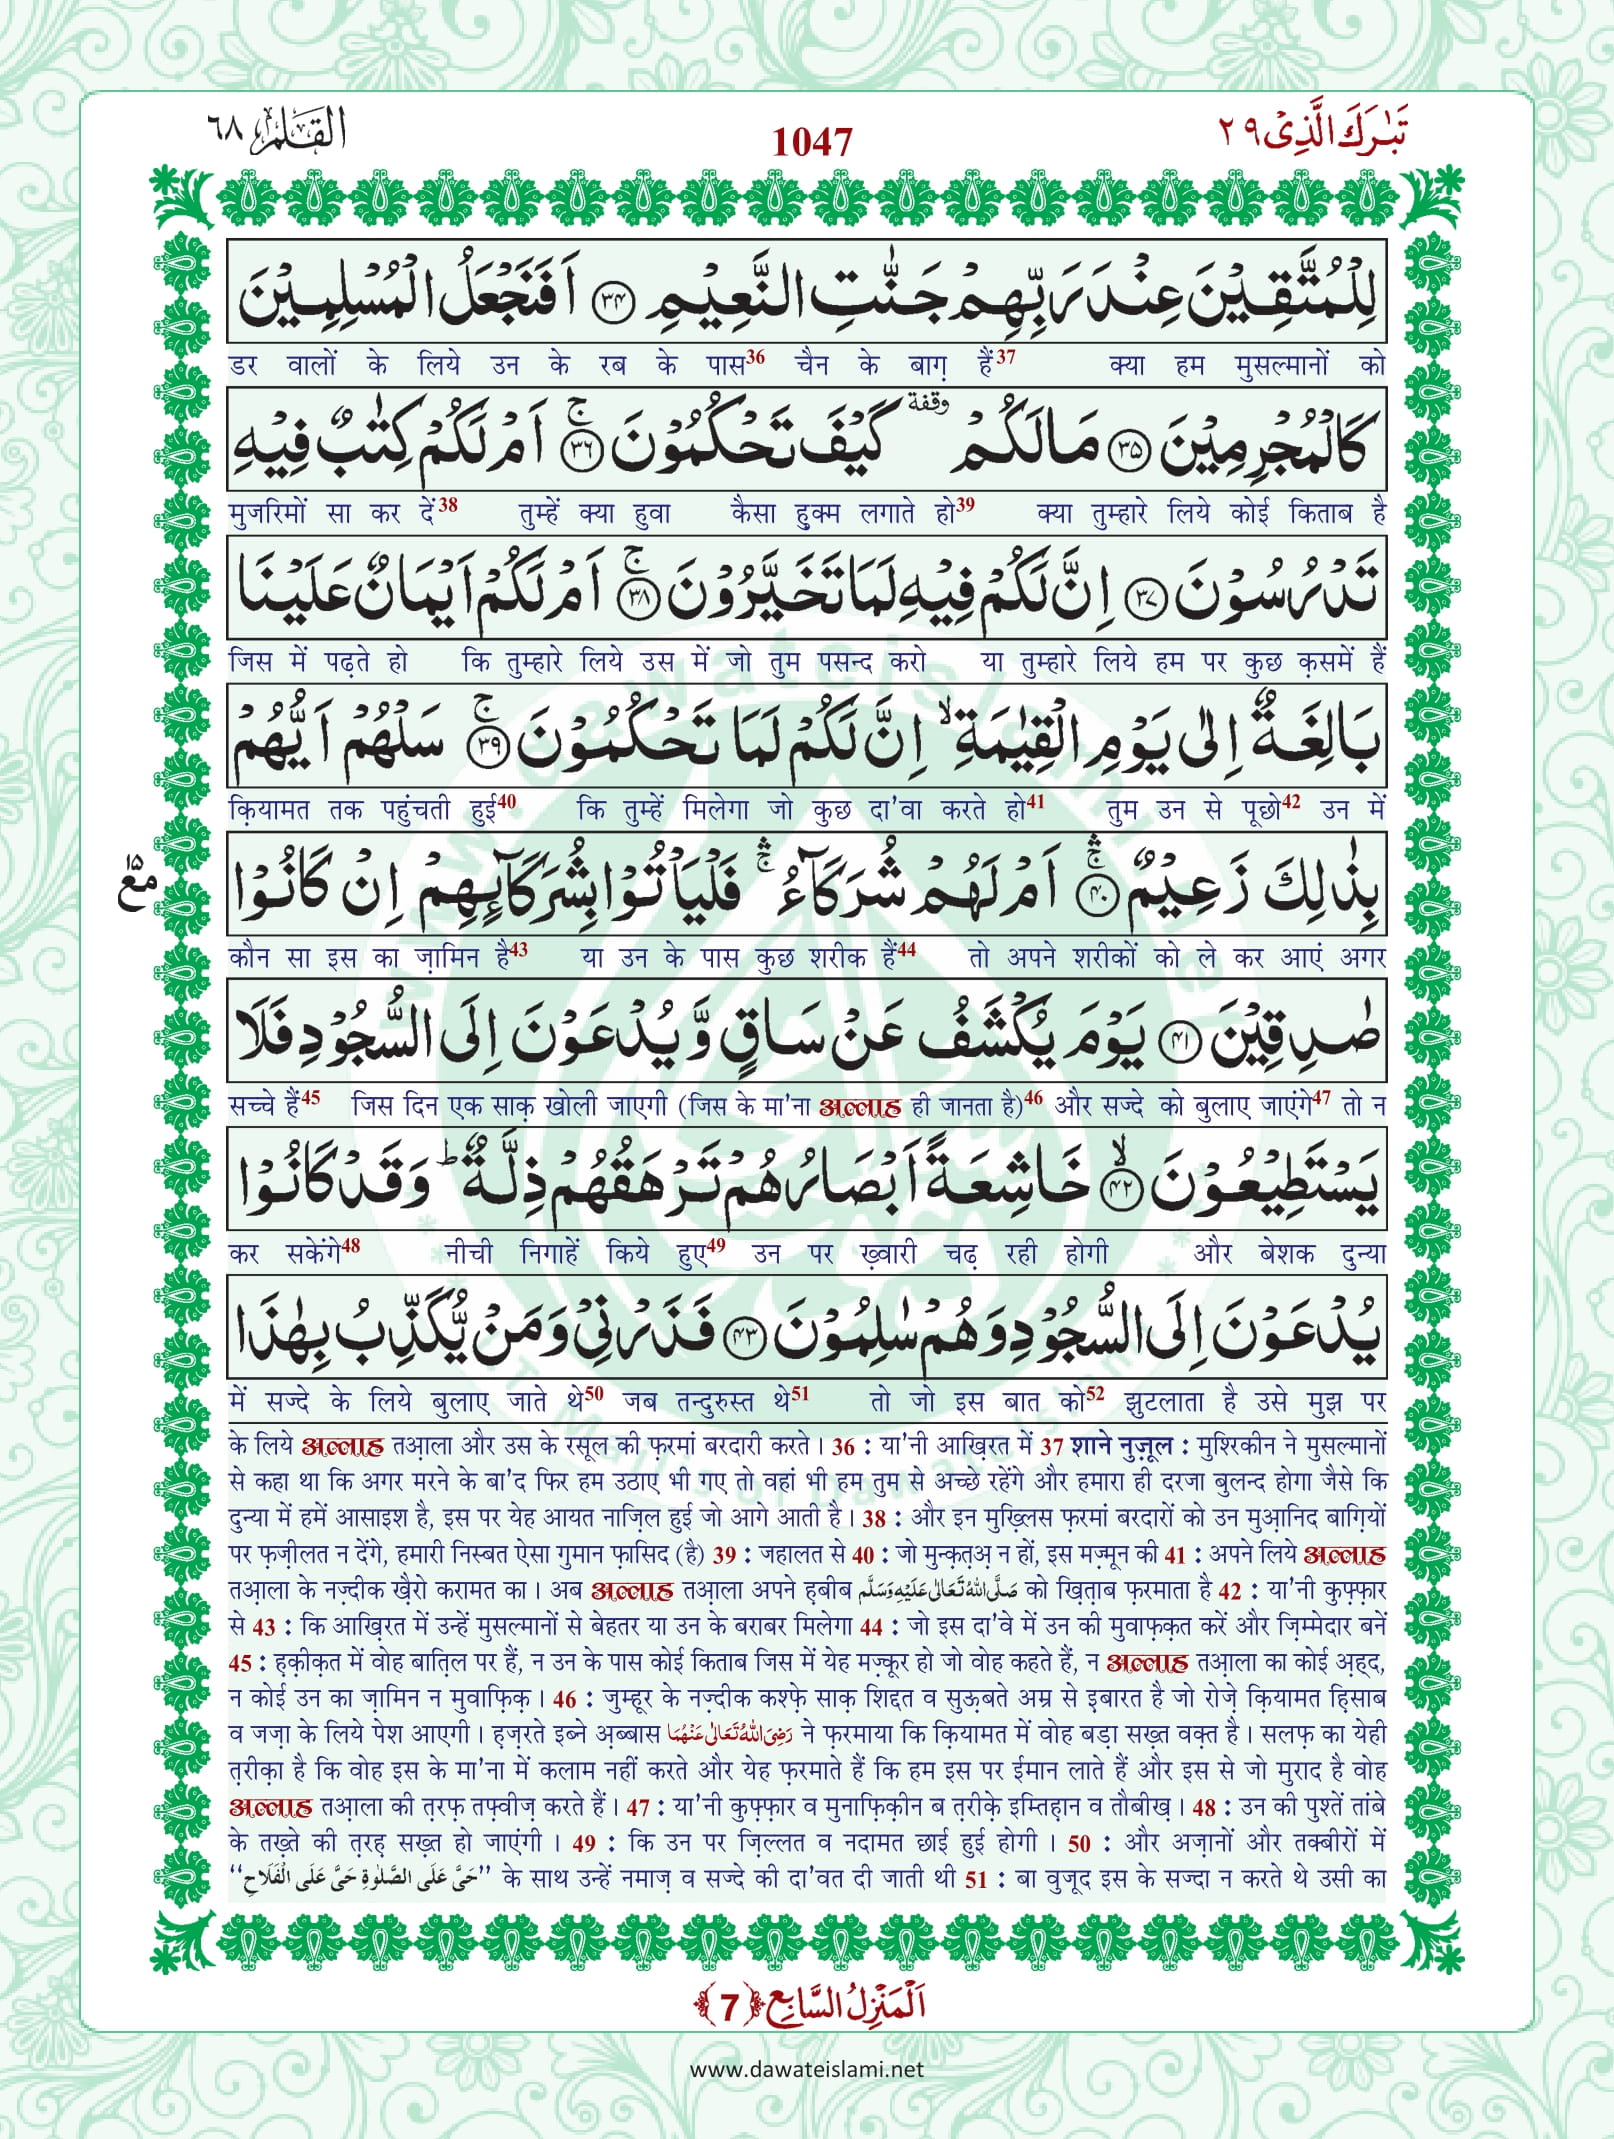 تَبٰرَكَ الَّذِیْ ٢٩
1047
الْقَلَم ٦٨
لِلْمُتَّقِیْنَ عِنْدَ رَبِّهِمْ جَنّٰتِ النَّعِیْمِ ﴿۳۴﴾ اَفَنَجْعَلُ الْمُسْلِمِیْنَ
डर वालों के लिये उन के रब के पास36 चैन के बाग़ हैं37 क्या हम मुसल्मानों को
كَالْمُجْرِمِیْنَ ﴿۳۵﴾ مَا لَكُمْ وقفة كَیْفَ تَحْكُمُوْنَ ﴿۳۶﴾ۚ اَمْ لَكُمْ كِتٰبٌ فِیْهِ
मुजरिमों सा कर दें38 तुम्हें क्या हुवा कैसा हुक्म लगाते हो39 क्या तुम्हारे लिये कोई किताब है
تَدْرُسُوْنَ ﴿۳۷﴾ اِنَّ لَكُمْ فِیْهِ لَمَا تَخَیَّرُوْنَ ﴿۳۸﴾ۚ اَمْ لَكُمْ اَیْمَانٌ عَلَیْنَا
जिस में पढ़ते हो कि तुम्हारे लिये उस में जो तुम पसन्द करो या तुम्हारे लिये हम पर कुछ क़समें हैं
بَالِغَةٌ اِلٰى یَوْمِ الْقِیٰمَةِۙ اِنَّ لَكُمْ لَمَا تَحْكُمُوْنَ ﴿۳۹﴾ۚ سَلْهُمْ اَیُّهُمْ
क़ियामत तक पहुंचती हुई40 कि तुम्हें मिलेगा जो कुछ दा'वा करते हो41 तुम उन से पूछो42 उन में
بِذٰلِكَ زَعِیْمٌ ﴿۴۰﴾ۚۛ اَمْ لَهُمْ شُرَكَآءُۚۛ فَلْیَاْتُوْا بِشُرَكَآىٕهِمْ اِنْ كَانُوْا
مع ۱۵
कौन सा इस का ज़ामिन है43 या उन के पास कुछ शरीक हैं44 तो अपने शरीकों को ले कर आएं अगर
صٰدِقِیْنَ ﴿۴۱﴾ یَوْمَ یُكْشَفُ عَنْ سَاقٍ وَّ یُدْعَوْنَ اِلَى السُّجُوْدِ فَلَا
सच्चे हैं45 जिस दिन एक साक़ खोली जाएगी (जिस के मा'ना अल्लाह ही जानता है)46 और सज्दे को बुलाए जाएंगे47 तो न
یَسْتَطِیْعُوْنَ ﴿۴۲﴾ۙ خَاشِعَةً اَبْصَارُهُمْ تَرْهَقُهُمْ ذِلَّةٌؕ وَ قَدْ كَانُوْا
कर सकेंगे48 नीची निगाहें किये हुए49 उन पर ख़्वारी चढ़ रही होगी और बेशक दुन्या
یُدْعَوْنَ اِلَى السُّجُوْدِ وَ هُمْ سٰلِمُوْنَ ﴿۴۳﴾ فَذَرْنِیْ وَ مَنْ یُّكَذِّبُ بِهٰذَا
में सज्दे के लिये बुलाए जाते थे50 जब तन्दुरुस्त थे51 तो जो इस बात को52 झुटलाता है उसे मुझ पर
के लिये अल्लाह तआ़ला और उस के रसूल की फ़रमां बरदारी करते। 36 : या'नी आख़िरत में 37 शाने नुज़ूल : मुश्रिकीन ने मुसल्मानों
से कहा था कि अगर मरने के बा'द फिर हम उठाए भी गए तो वहां भी हम तुम से अच्छे रहेंगे और हमारा ही दरजा बुलन्द होगा जैसे कि
दुन्या में हमें आसाइश है, इस पर येह आयत नाज़िल हुई जो आगे आती है। 38 : और इन मुख़्लिस फ़रमां बरदारों को उन मुआ़निद बाग़ियों
पर फ़ज़ीलत न देंगे, हमारी निस्बत ऐसा गुमान फ़ासिद (है) 39 : जहालत से 40 : जो मुन्क़त़अ़ न हों, इस मज़्मून की 41 : अपने लिये अल्लाह
तआ़ला के नज़्दीक ख़ैरो करामत का। अब अल्लाह तआ़ला अपने ह़बीब صَلَّى اللهُ تَعَالٰى عَلَیْهِ وَسَلَّم को ख़ित़ाब फ़रमाता है 42 : या'नी कुफ़्फ़ार
से 43 : कि आख़िरत में उन्हें मुसल्मानों से बेहतर या उन के बराबर मिलेगा 44 : जो इस दा'वे में उन की मुवाफ़क़त करें और ज़िम्मेदार बनें
45 : ह़क़ीक़त में वोह बात़िल पर हैं, न उन के पास कोई किताब जिस में येह मज़्कूर हो जो वोह कहते हैं, न अल्लाह तआ़ला का कोई अ़ह्द,
न कोई उन का ज़ामिन न मुवाफ़िक़। 46 : जुम्हूर के नज़्दीक कश्फ़े साक़ शिद्दत व सुऊ़बते अम्र से इ़बारत है जो रोज़े क़ियामत ह़िसाब
व जज़ा के लिये पेश आएगी। ह़ज़रते इब्ने अ़ब्बास رَضِیَ اللهُ تَعَالٰى عَنْهُمَا ने फ़रमाया कि क़ियामत में वोह बड़ा सख़्त वक़्त है। सलफ़ का येही
त़रीक़ा है कि वोह इस के मा'ना में कलाम नहीं करते और येह फ़रमाते हैं कि हम इस पर ईमान लाते हैं और इस से जो मुराद है वोह
अल्लाह तआ़ला की त़रफ़ तफ़्वीज़ करते हैं। 47 : या'नी कुफ़्फ़ार व मुनाफ़िक़ीन ब त़रीक़े इम्तिह़ान व तौबीख़। 48 : उन की पुश्तें तांबे
के तख़्ते की त़रह़ सख़्त हो जाएंगी। 49 : कि उन पर ज़िल्लत व नदामत छाई हुई होगी। 50 : और अज़ानों और तक्बीरों में
“حَیَّ عَلَى الصَّلٰوةِ حَیَّ عَلَى الْفَلَاحِ” के साथ उन्हें नमाज़ व सज्दे की दा'वत दी जाती थी 51 : बा वुजूद इस के सज्दा न करते थे उसी का
اَلْمَنْزِلُ السَّابِع ﴿7﴾
www.dawateislami.net